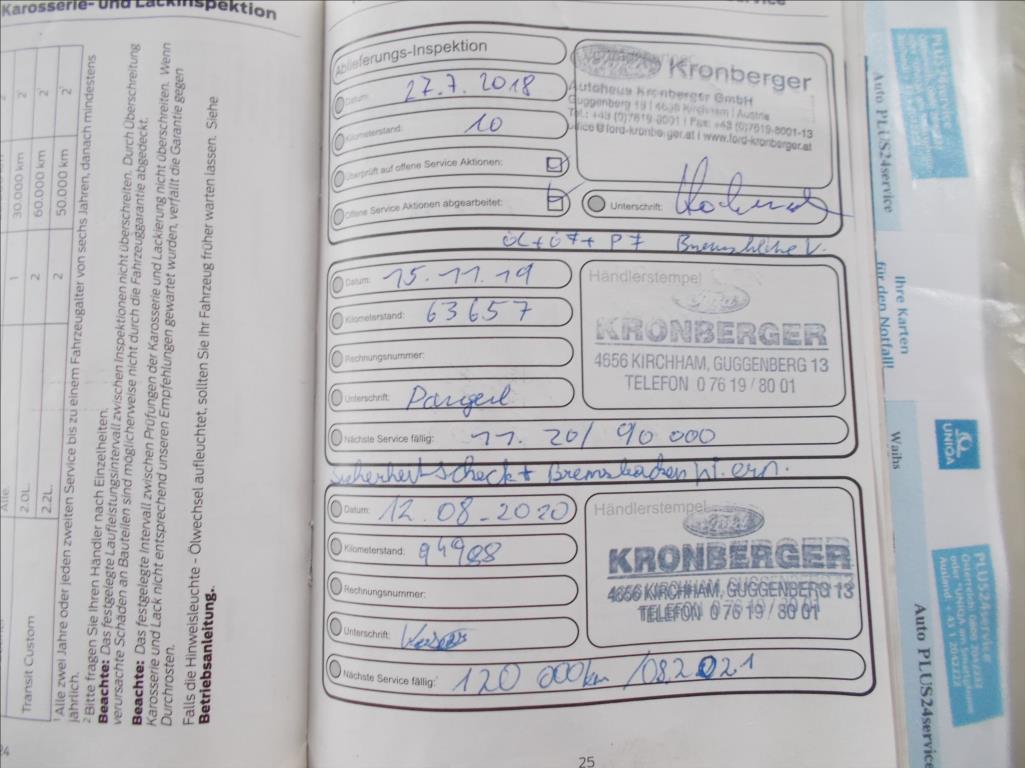 Karosserie- und Lackinspektion
2
30.000 km
60.000 km
50.000 km
1
2
2
Alle.
2.0L.
2.2L.
Transit Custom
1 Alle zwei Jahre oder jeden zweiten Service bis zu einem Fahrzeugalter von sechs Jahren, danach mindestens
jährlich.
2 Bitte fragen Sie Ihren Händler nach Einzelheiten.
Beachte: Das festgelegte Laufleistungsintervall zwischen Inspektionen nicht überschreiten. Durch Überschreitung
verursachte Schäden an Bauteilen sind möglicherweise nicht durch die Fahrzeuggarantie abgedeckt.
Beachte: Das festgelegte Intervall zwischen Prüfungen der Karosserie und Lackierung nicht überschreiten. Wenn
Karosserie und Lack nicht entsprechend unseren Empfehlungen gewartet wurden, verfällt die Garantie gegen
Durchrosten.
Falls die Hinweisleuchte - Ölwechsel aufleuchtet, sollten Sie Ihr Fahrzeug früher warten lassen. Siehe
Betriebsanleitung.
Ablieferungs-Inspektion
Datum: 27.7.2018
Kilometerstand: 10
Überprüft auf offene Service Aktionen:
Offene Service Aktionen abgearbeitet:
Kronberger
Autohaus Kronberger GmbH
Guggenberg 19 | 4656 Kirchham | Austria
Tel.: +43 (0)7619-8001 | Fax: +43 (0)7619-8001-13
office@ford-kronberger.at | www.ford-kronberger.at
Unterschrift:
Datum: 15.11.19
Kilometerstand: 63657
Rechnungsnummer:
Unterschrift: Pangerl
Nächste Service fällig: 11.20/90 000
Händlerstempel
Ford
KRONBERGER
4656 KIRCHHAM, GUGGENBERG 13
TELEFON 0 76 19 / 80 01
Sicherheitscheck + Bremsbacken hi. ern.
Datum: 12.08.2020
Kilometerstand: 94988
Rechnungsnummer:
Unterschrift:
Nächste Service fällig: 120 000km /08.2021
Händlerstempel
Ford
KRONBERGER
4656 KIRCHHAM, GUGGENBERG 13
TELEFON 0 76 19 / 80 01
25
24
PLUS24service
Auto PLUS24service
Ihre Karten
für den Notfall!
UNIQA
Waihs
PLUS24service
Österreich: 0800 2042222
oder UNIQA am Smartphone
Ausland + 43 1 2042222
Auto PLUS24service